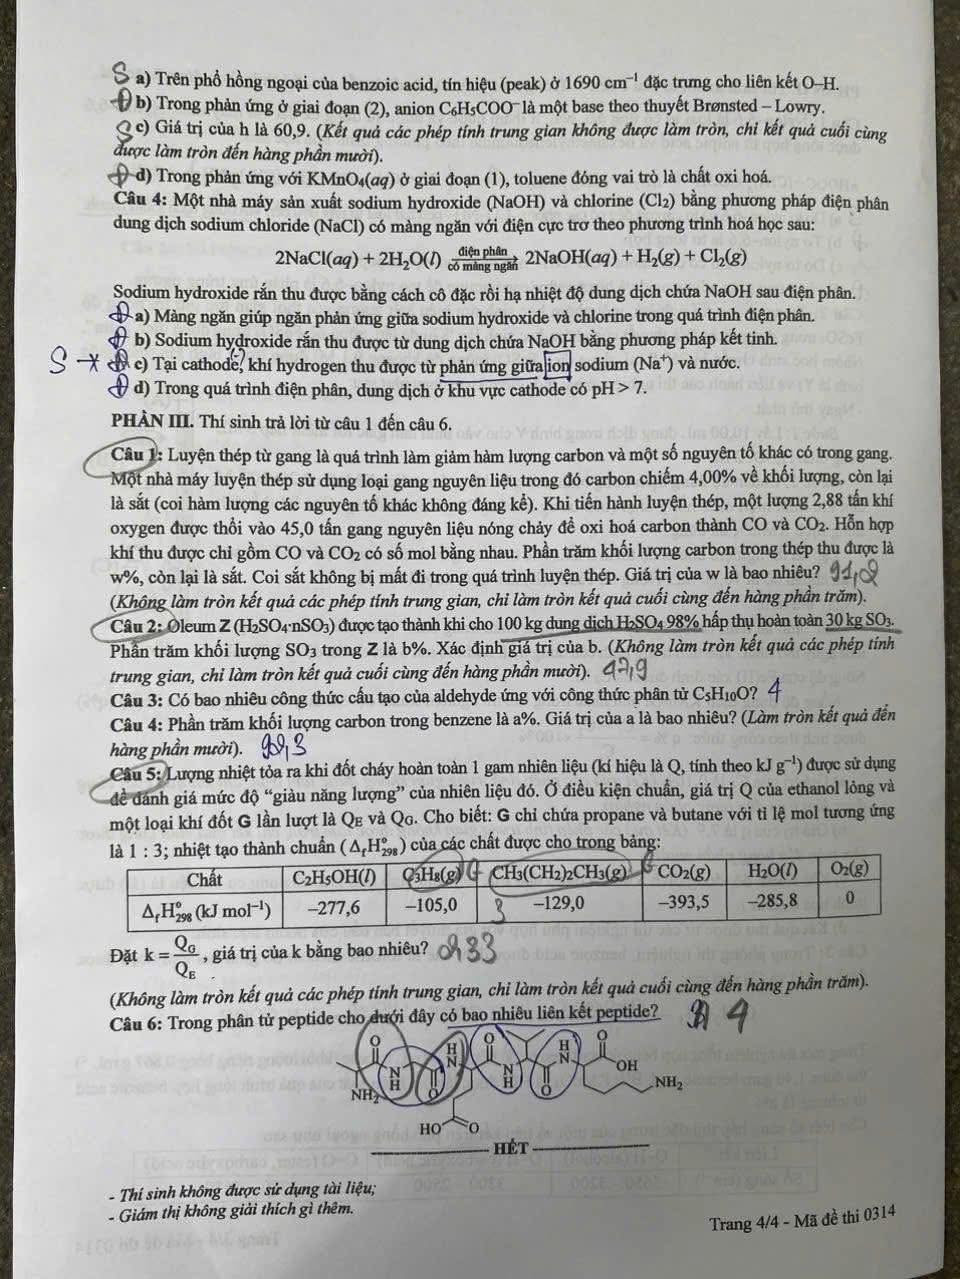 S a) Trên phổ hồng ngoại của benzoic acid, tín hiệu (peak) ở 1690 cm⁻¹ đặc trưng cho liên kết O–H.
Đ b) Trong phản ứng ở giai đoạn (2), anion C₆H₅COO⁻ là một base theo thuyết Brønsted – Lowry.
S c) Giá trị của h là 60,9. (Kết quả các phép tính trung gian không được làm tròn, chỉ kết quả cuối cùng
được làm tròn đến hàng phần mười).
Đ d) Trong phản ứng với KMnO₄(aq) ở giai đoạn (1), toluene đóng vai trò là chất oxi hoá.
Câu 4: Một nhà máy sản xuất sodium hydroxide (NaOH) và chlorine (Cl₂) bằng phương pháp điện phân
dung dịch sodium chloride (NaCl) có màng ngăn với điện cực trơ theo phương trình hoá học sau:
2NaCl(aq) + 2H₂O(l) điện phân có màng ngăn → 2NaOH(aq) + H₂(g) + Cl₂(g)
Sodium hydroxide rắn thu được bằng cách cô đặc rồi hạ nhiệt độ dung dịch chứa NaOH sau điện phân.
Đ a) Màng ngăn giúp ngăn phản ứng giữa sodium hydroxide và chlorine trong quá trình điện phân.
Đ b) Sodium hydroxide rắn thu được từ dung dịch chứa NaOH bằng phương pháp kết tinh.
S c) Tại cathode, khí hydrogen thu được từ phản ứng giữa ion sodium (Na⁺) và nước.
Đ d) Trong quá trình điện phân, dung dịch ở khu vực cathode có pH > 7.
PHẦN III. Thí sinh trả lời từ câu 1 đến câu 6.
Câu 1: Luyện thép từ gang là quá trình làm giảm hàm lượng carbon và một số nguyên tố khác có trong gang.
Một nhà máy luyện thép sử dụng loại gang nguyên liệu trong đó carbon chiếm 4,00% về khối lượng, còn lại
là sắt (coi hàm lượng các nguyên tố khác không đáng kể). Khi tiến hành luyện thép, một lượng 2,88 tấn khí
oxygen được thổi vào 45,0 tấn gang nguyên liệu nóng chảy để oxi hoá carbon thành CO và CO₂. Hỗn hợp
khí thu được chỉ gồm CO và CO₂ có số mol bằng nhau. Phần trăm khối lượng carbon trong thép thu được là
w%, còn lại là sắt. Coi sắt không bị mất đi trong quá trình luyện thép. Giá trị của w là bao nhiêu?
(Không làm tròn kết quả các phép tính trung gian, chỉ làm tròn kết quả cuối cùng đến hàng phần trăm).
Câu 2: Oleum Z (H₂SO₄·nSO₃) được tạo thành khi cho 100 kg dung dịch H₂SO₄ 98% hấp thụ hoàn toàn 30 kg SO₃.
Phần trăm khối lượng SO₃ trong Z là b%. Xác định giá trị của b. (Không làm tròn kết quả các phép tính
trung gian, chỉ làm tròn kết quả cuối cùng đến hàng phần mười).
Câu 3: Có bao nhiêu công thức cấu tạo của aldehyde ứng với công thức phân tử C₅H₁₀O? 4
Câu 4: Phần trăm khối lượng carbon trong benzene là a%. Giá trị của a là bao nhiêu? (Làm tròn kết quả đến
hàng phần mười).
Câu 5: Lượng nhiệt tỏa ra khi đốt cháy hoàn toàn 1 gam nhiên liệu (kí hiệu là Q, tính theo kJ g⁻¹) được sử dụng
để đánh giá mức độ “giàu năng lượng” của nhiên liệu đó. Ở điều kiện chuẩn, giá trị Q của ethanol lỏng và
một loại khí đốt G lần lượt là Q_E và Q_G. Cho biết: G chỉ chứa propane và butane với tỉ lệ mol tương ứng
là 1 : 3; nhiệt tạo thành chuẩn (Δ_fH°₂₉₈) của các chất được cho trong bảng:
Chất C₂H₅OH(l) C₃H₈(g) CH₃(CH₂)₂CH₃(g) CO₂(g) H₂O(l) O₂(g)
Δ_fH°₂₉₈ (kJ mol⁻¹) –277,6 –105,0 –129,0 –393,5 –285,8 0
Đặt k = Q_G/Q_E, giá trị của k bằng bao nhiêu?
(Không làm tròn kết quả các phép tính trung gian, chỉ làm tròn kết quả cuối cùng đến hàng phần trăm).
Câu 6: Trong phân tử peptide cho dưới đây có bao nhiêu liên kết peptide? 4
O H N O H N O
N H O N H O OH
NH₂ NH₂
HO O
HẾT
- Thí sinh không được sử dụng tài liệu;
- Giám thị không giải thích gì thêm.
Trang 4/4 - Mã đề thi 0314